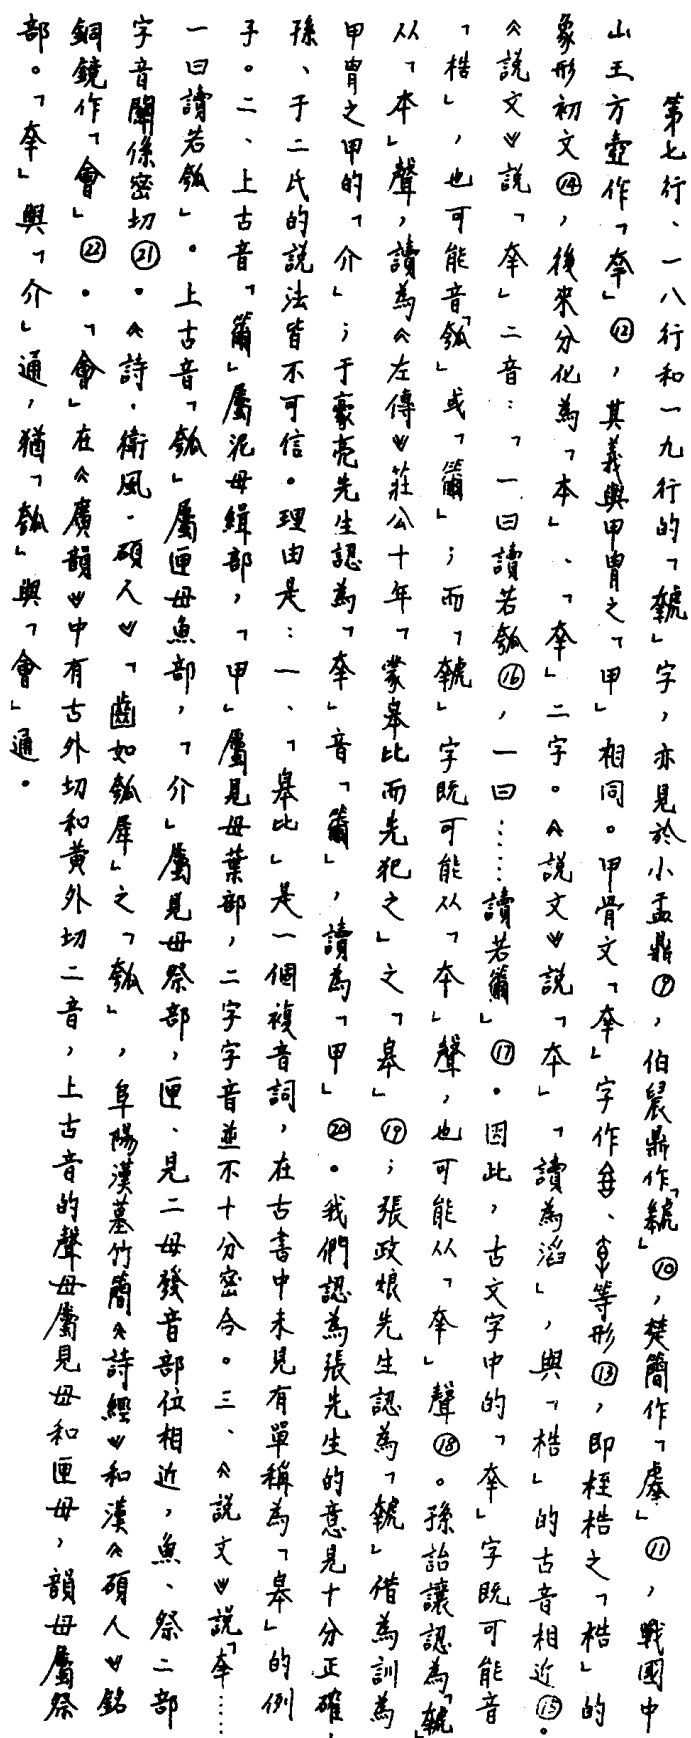 第七行、一八行和一九行的「虢」字，亦見於小盂鼎⑨，伯晨鼎作「虢」⑩，楚簡作「虖」⑪，戰國中
山王方壺作「㚔」⑫，其義與甲冑之「甲」相同。甲骨文「㚔」字作等形⑬，即桎梏之「梏」的
象形初文⑭，後來分化為「夲」、「㚔」二字。《說文》說「夲」「讀為滔」，與「梏」的古音相近⑮。
《說文》說「㚔」二音：「一曰讀若瓠⑯，一曰……讀若籋」⑰。因此，古文字中的「㚔」字既可能音
「梏」，也可能音「瓠」或「籋」；而「」字既可能从「夲」聲，也可能从「㚔」聲⑱。孫詒讓認為「」
从「夲」聲，讀為《左傳》莊公十年「蒙皋比而先犯之」之「皋」⑲；張政烺先生認為「」借為訓為
甲冑之甲的「介」；于豪亮先生認為「㚔」音「籋」，讀為「甲」⑳。我們認為張先生的意見十分正確，
孫、于二氏的說法皆不可信。理由是：一、「皋比」是一個複音詞，在古書中未見有單稱為「皋」的例
子。二、上古音「籋」屬泥母緝部，「甲」屬見母葉部，二字字音並不十分密合。三、《說文》說「㚔……
一曰讀若瓠」。上古音「瓠」屬匣母魚部，「介」屬見母祭部，匣、見二母發音部位相近，魚、祭二部
字音關係密切㉑。《詩·衛風·碩人》「齒如瓠犀」之「瓠」，阜陽漢墓竹簡《詩經》和漢《碩人》銘
銅鏡作「會」㉒。「會」在《廣韻》中有古外切和黃外切二音，上古音的聲母屬見母和匣母，韻母屬祭
部。「㚔」與「介」通，猶「瓠」與「會」通。